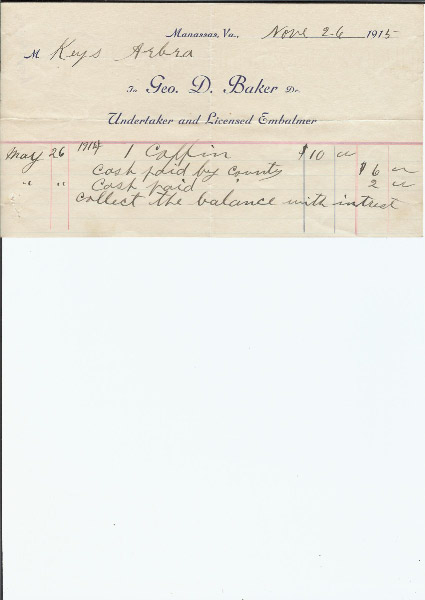 Manassas, Va., Nove 26 1915
M Keys Arbra
To Geo. D. Baker Dr.
Undertaker and Licensed Embalmer
May 26 1914 1 Coffin $10 00
Cash paid by county $6 00
" " Cash paid 2 00
collect the balance with intrest